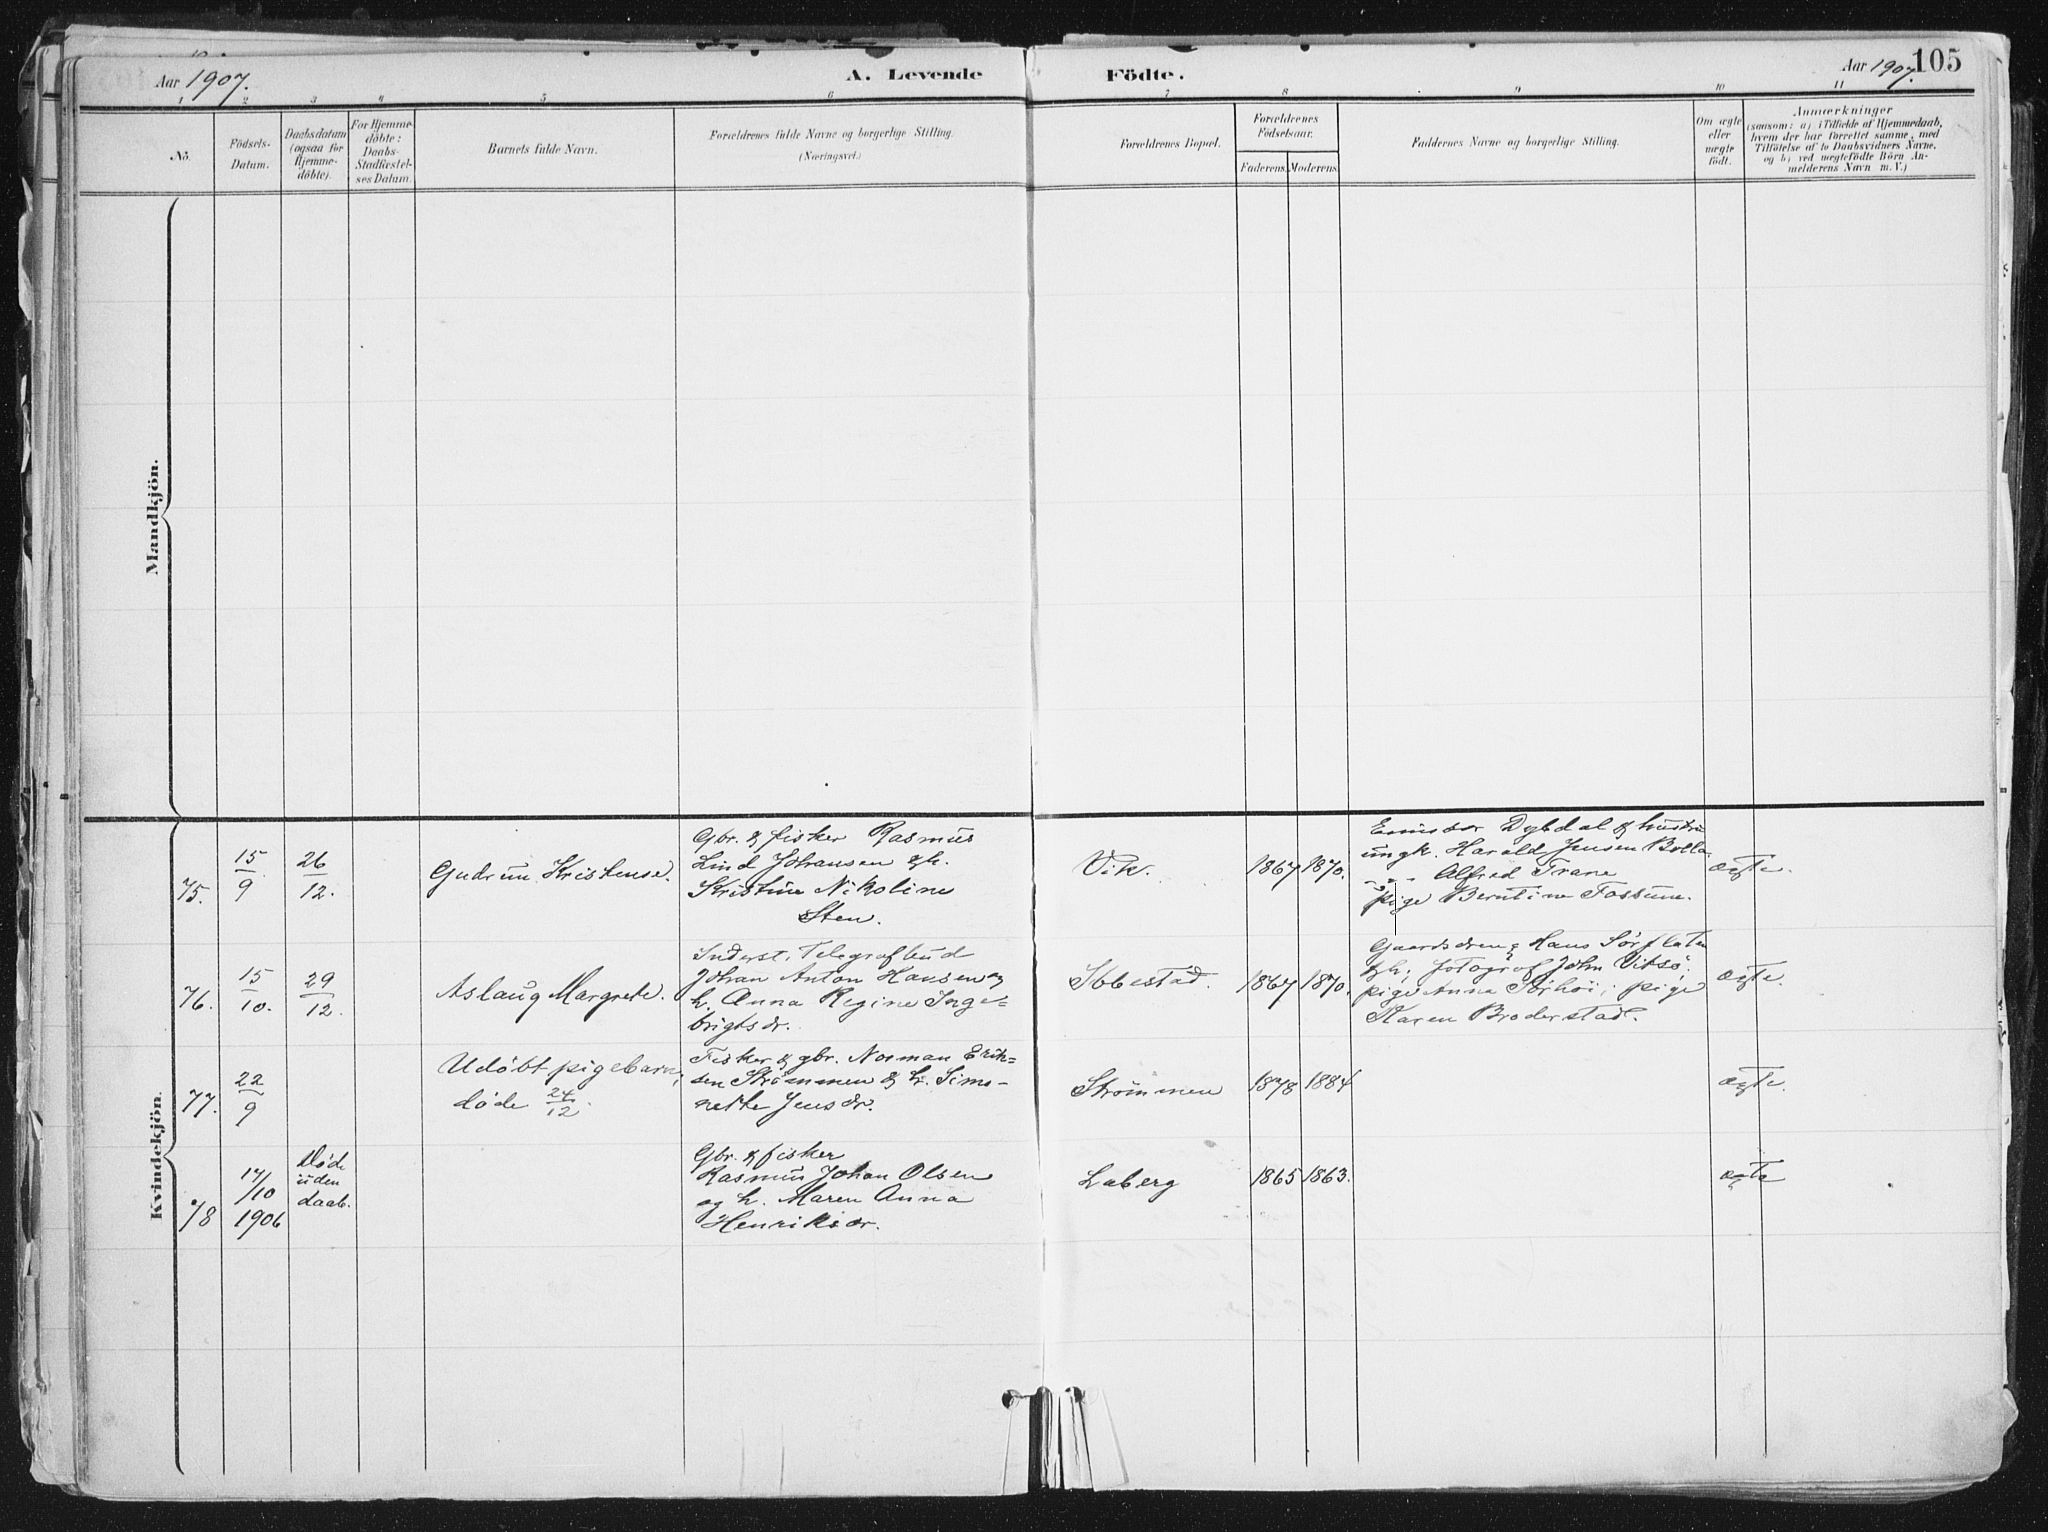 Aar 1907.
A. Levende
Födte.
Aar 1907. 105
1 2 3 4 5 6 7 8 9 10 11
No.
Födsels-
Datum.
Daabsdatum
(ogsaa for
Hjemme-
döbte).
For Hjemme-
döbte:
Daabs-
Stadfæstel-
ses Datum.
Barnets fulde Navn.
Forældrenes fulde Navne og borgerlige Stilling.
(Næringsvei.)
Forældrenes Bopæl.
Forældrenes
Födselsaar.
Faderens. Moderens.
Faddernes Navne og borgerlige Stilling.
Om ægte
eller
uægte
födt.
Anmærkninger
(saasom: a) i Tilfælde af Hjemmedaab,
hvem der har forrettet samme, med
Tilföielse af to Daabsvidners Navne,
og b) ved uægtefödte Börn An-
melderens Navn m. V.)
Mandkjön.
Kvindekjön.
75.
15/9
26/12.
Gudrun Kristense.
Gbr. & fisker Rasmus
Lind Johansen & h.
Kristine Nikoline
Sten.
Vik.
1867 1870.
Dybdal & hustru
ungk. Harald Jensen
" " Alfred Trane
pige Berntine Fossum.
ægte.
76.
15/10.
29/12.
Aslaug Margrete.
Inderst, Telegrafbud
Johan Anton Hansen og
h. Anna Regine Inge-
brigtsdr.
Ibbestad.
1867 1870.
Gaardsdreng Hans Sørflaten
& h; fotograf John Vitsø;
pige Anna Sørhøi; pige
Karen Broderstad.
ægte.
77.
22/9
Udøbt pigebarn,
døde 24/12.
Fisker & gbr. Norman Erik-
sen Strømmen & h. Simo-
nette Jensdr.
Strømmen
1878 1884
ægte.
78
17/10
1906
Døde
uden
daab.
Gbr. & fisker
Rasmus Johan Olsen
og h. Maren Anna
Henriksdr.
Laberg
1865 1863.
ægte